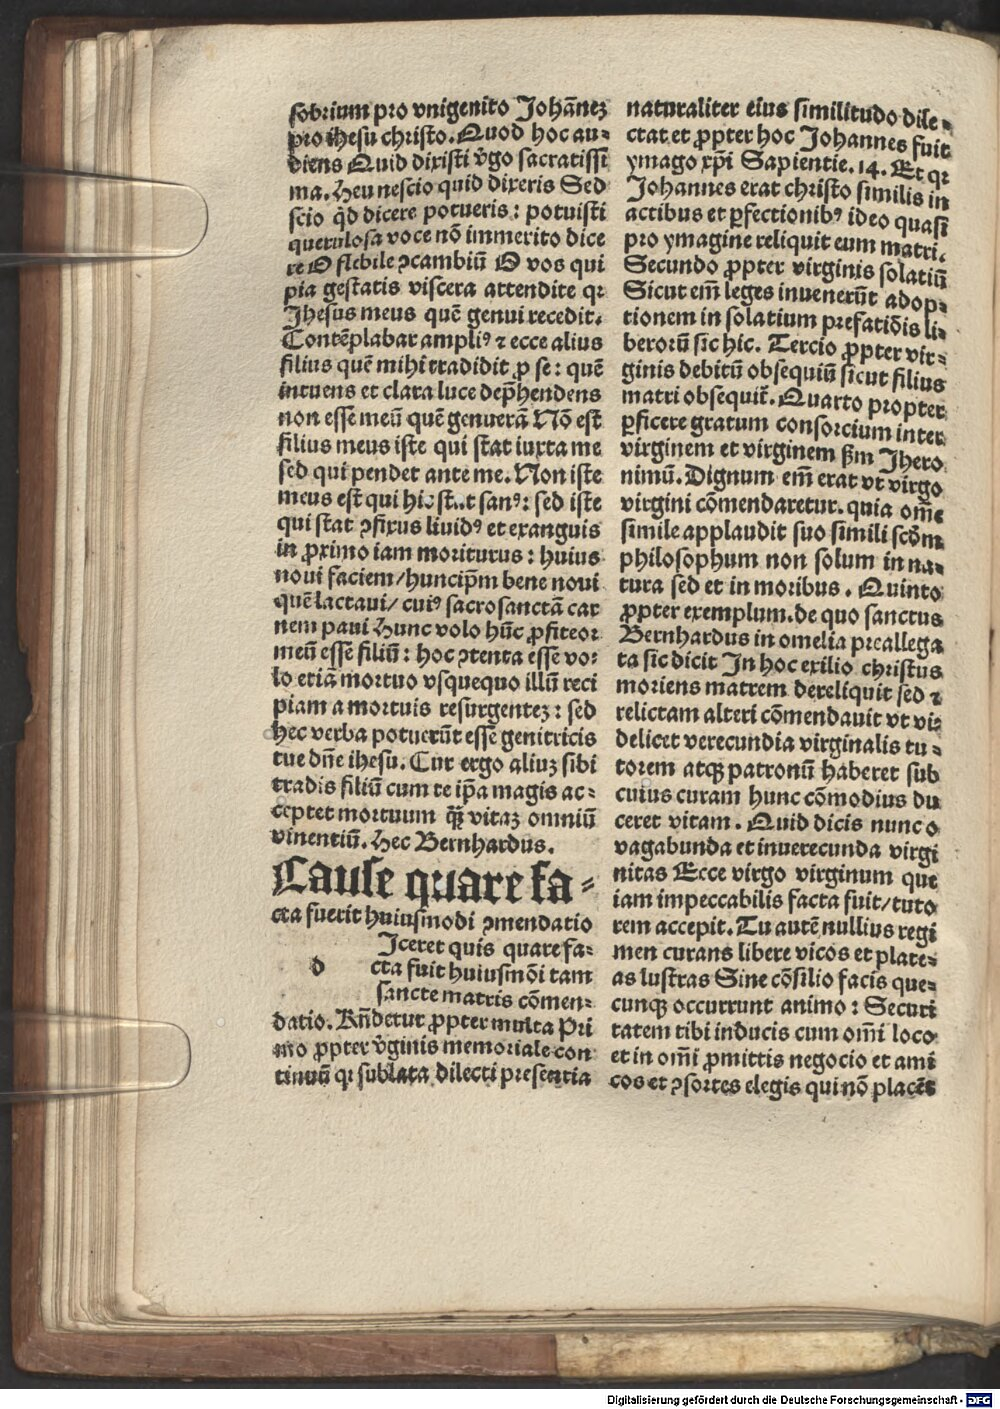 sobrium pro vnigenito Johānez
pro ihesu christo. Quod hoc au-
diens Quid dixisti v̄go sacratissi
ma. Heu nescio quid dixeris Sed
scio q̄d dicere potueris: potuisti
querulosa voce nō immerito dice
re O flebile ꝯcambiū O vos qui
pia gestatis viscera attendite qꝛ
Jhesus meus quē genui recedit.
Contēplabar ampliꝰ ⁊ ecce alius
filius quē mihi tradidit ꝓ se: quē
intuens et clara luce dep̄hendens
non esse meū quē genuerā Nō est
filius meus iste qui stat iuxta me
sed qui pendet ante me. Non iste
meus est qui hic stat sanꝰ: sed iste
qui stat ꝯfixus liuidꝰ et exanguis
in ꝓximo iam moriturus: huius
noui faciem/huncip̄m bene noui
quē lactaui/ cuiꝰ sacrosanctā car
nem paui Hunc volo hūc ꝓfiteor
meū esse filiū: hoc ꝯtenta esse vo-
lo etiā mortuo vsquequo illū reci
piam a mortuis resurgentez: sed
hec verba potuerūt esse genitricis
tue dn̄e ihesu. Cur ergo aliuz sibi
tradis filiū cum te ip̄a magis ac-
ceptet mortuum q̄ꝫ vitaz omniū
viuentiū. Hec Bernhardus.
Cause quare fa-
cta fuerit huiusmodi ꝯmendatio
Jceret quis quare fa-
d cta fuit huiusmōi tam
sancte matris cōmen-
datio. Rn̄detur ꝓpter multa Pri
mo ꝓpter v̄ginis memoriale con
tinuū qꝛ sublata dilecti presentia
naturaliter eius similitudo dile-
ctat et ꝓpter hoc Johannes fuit
ymago xp̄i Sapientie. 14. Et qꝛ
Johannes erat christo similis in
actibus et ꝑfectionibꝰ ideo quasi
pro ymagine reliquit eum matri.
Secundo ꝓpter virginis solatiū
Sicut em̄ leges inuenerūt adop-
tionem in solatium prefatiōis li-
berorū sic hic. Tercio ꝓpter vir-
ginis debitū obsequiū sicut filius
matri obsequit᷑. Quarto propter
ꝑficere gratum consorcium inter
virginem et virginem ẜm Jhero
nimū. Dignum em̄ erat vt virgo
virgini cōmendaretur. quia om̄e
simile applaudit suo simili scōm
philosophum non solum in na-
tura sed et in moribus. Quinto
ꝓpter exemplum. de quo sanctus
Bernhardus in omelia preallega
ta sic dicit In hoc exilio christus
moriens matrem dereliquit sed ⁊
relictam alteri cōmendauit vt vi-
delicet verecundia virginalis tu-
torem atqꝫ patronū haberet sub
cuius curam hunc cōmodius du
ceret vitam. Quid dicis nunc o
vagabunda et inuerecunda virgi
nitas Ecce virgo virginum que
iam impeccabilis facta fuit/tuto
rem accepit. Tu autē nullius regi
men curans libere vicos et plate-
as lustras Sine cōsilio facis que-
cunqꝫ occurrunt animo: Securi
tatem tibi inducis cum om̄i loco
et in om̄i ꝓmittis negocio et ami
cos et ꝯsortes elegis qui nō placēt
Digitalisierung gefördert durch die Deutsche Forschungsgemeinschaft - DFG